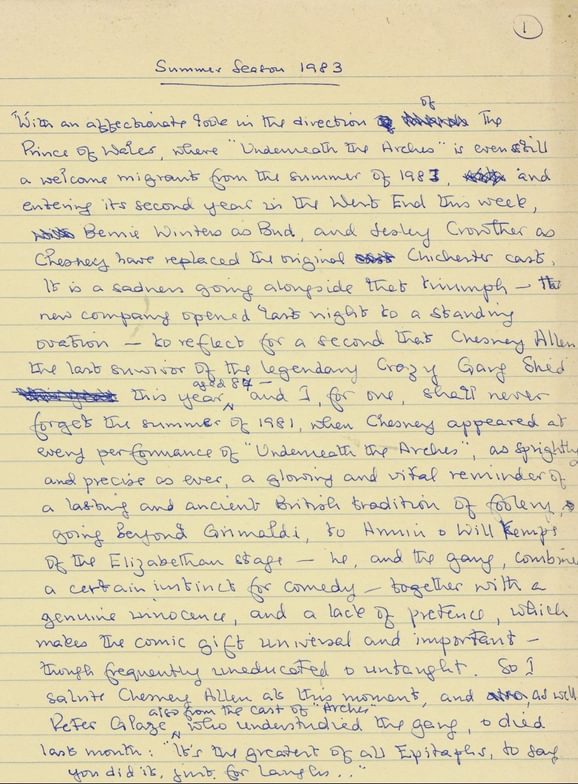 1
Summer Season 1983
of
"With an affectionate look in the direction The
Prince of Wales, where "Underneath the Arches" is even still
a welcome migrant from the summer of 1981, and
entering its second year in the West End this week,
Bernie Winters as Bud, and Lesley Crowther as
Chesney have replaced the original Chichester cast.
It is a sadness going alongside that triumph — the
new company opened last night to a standing
ovation — to reflect for a second that Chesney Allen
the last survivor of the legendary Crazy Gang died
aged 87 —
this year, and I, for one, shall never
forget the summer of 1981, when Chesney appeared at
every performance of "Underneath the Arches", as sprightly
and precise as ever, a glowing and vital reminder of
a lasting and ancient British tradition of foolery,
going beyond Grimaldi, to Armin & Will Kempe
of the Elizabethan stage — he, and the gang, combine
a certain instinct for comedy — together with a
genuine innocence, and a lack of pretence, which
makes the comic gift universal and important —
though frequently uneducated & untaught. So I
salute Chesney Allen at this moment, and as well
also from the cast of "Arches"
Peter Glaze, who understudied the gang, & died
last month: "It's the greatest of all Epitaphs, to say
you did it, just, for laughs..."